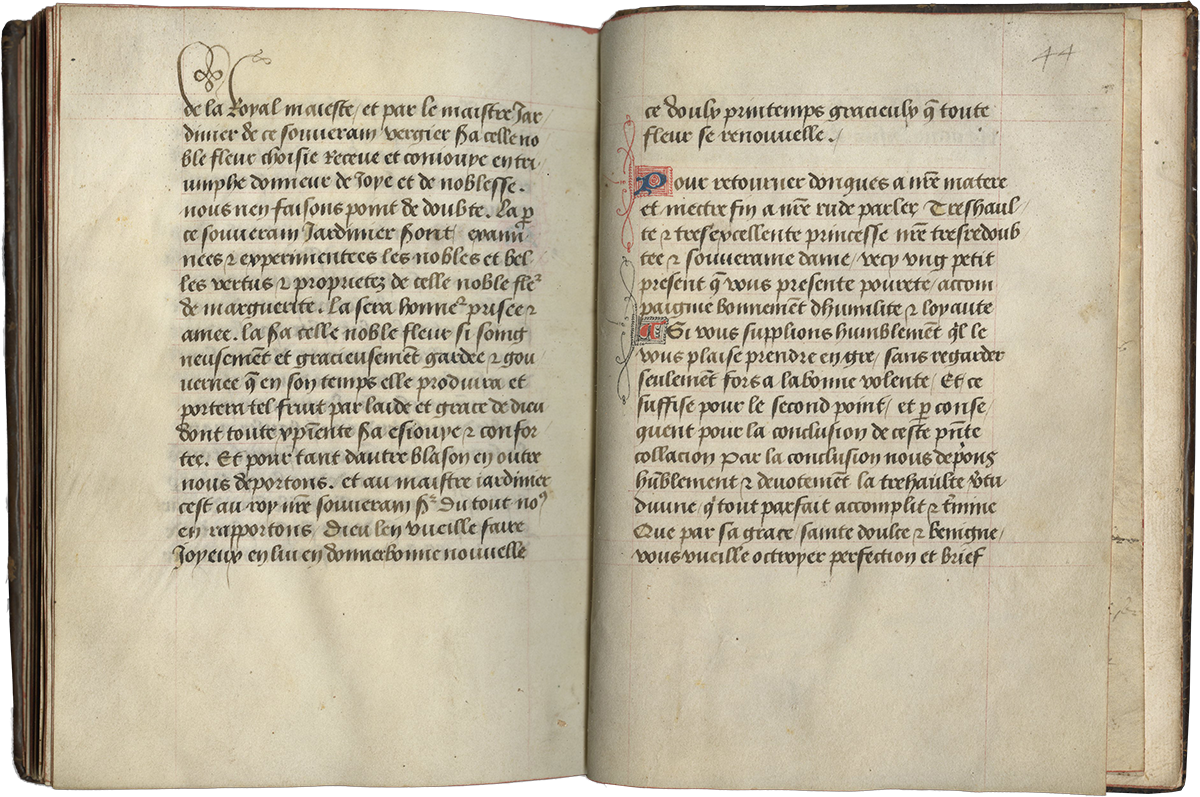 de la Royal maieste / et par le maistre Jar
dinier de ce souuerain vergier Sa celle no
ble fleur choisie Receue et coniouye en tri
umphe donneur de Joye et de noblesse .
nous nen faisons point de doubte . La p̱
ce souuerain Jardinier Sont / examı̃
nees ⁊ experimentees les nobles et bel
les vertus ⁊ proprietez de celle noble fle᷑
de marguerite . La sera honne᷑ prisee ⁊
amee . la Sa celle noble fleur si soing
neusement et gracieusemẽt gardee ⁊ gou
uernee q̃ en son temps elle produira et
portera tel fruit par laide et grace de dieu
dont toute xp̃iente Sa esiouye ⁊ confor
tee . Et pour tant dautre blason en oultre
nous deportons . et au maistre iardinier
cest au roy nr̃e souuerain S᷑ . Du tout noꝰ
en rapportons / Dieu len vueille faire
Joyeux en lui en donner bonne nouuelle
44
ce doulx printemps gracieulx q̃ toute
fleur se renouuelle . /
Pour retourner donques a nr̃e matere
et mectre fin a nr̃e rude parler / Treshaul /
te ⁊ tresexcellente princesse nr̃e tresredoub
tee ⁊ souueraine dame / vecy vng petit
present q̃ vous presente pourete / accom
paignie bonnement dhumilite ⁊ loyaute
Si vous supplions humblemẽt q̃l le
vous plaise prendre en gre / sans regarder
seulemẽt fors a la bonne volente / Et ce
suffise pour le second point / et p̱ conse /
quent pour la conclusion de ceste pn̄te
collacion Par la conclusion nous dep̃ons
hũblement ⁊ deuotement la trehaulte v̾tu
diuine / q̇ tout parfait accomplit ⁊ t̃mine
Que par sa grace / sainte doulce ⁊ benigne /
vous vueille octroyer perfection et brief